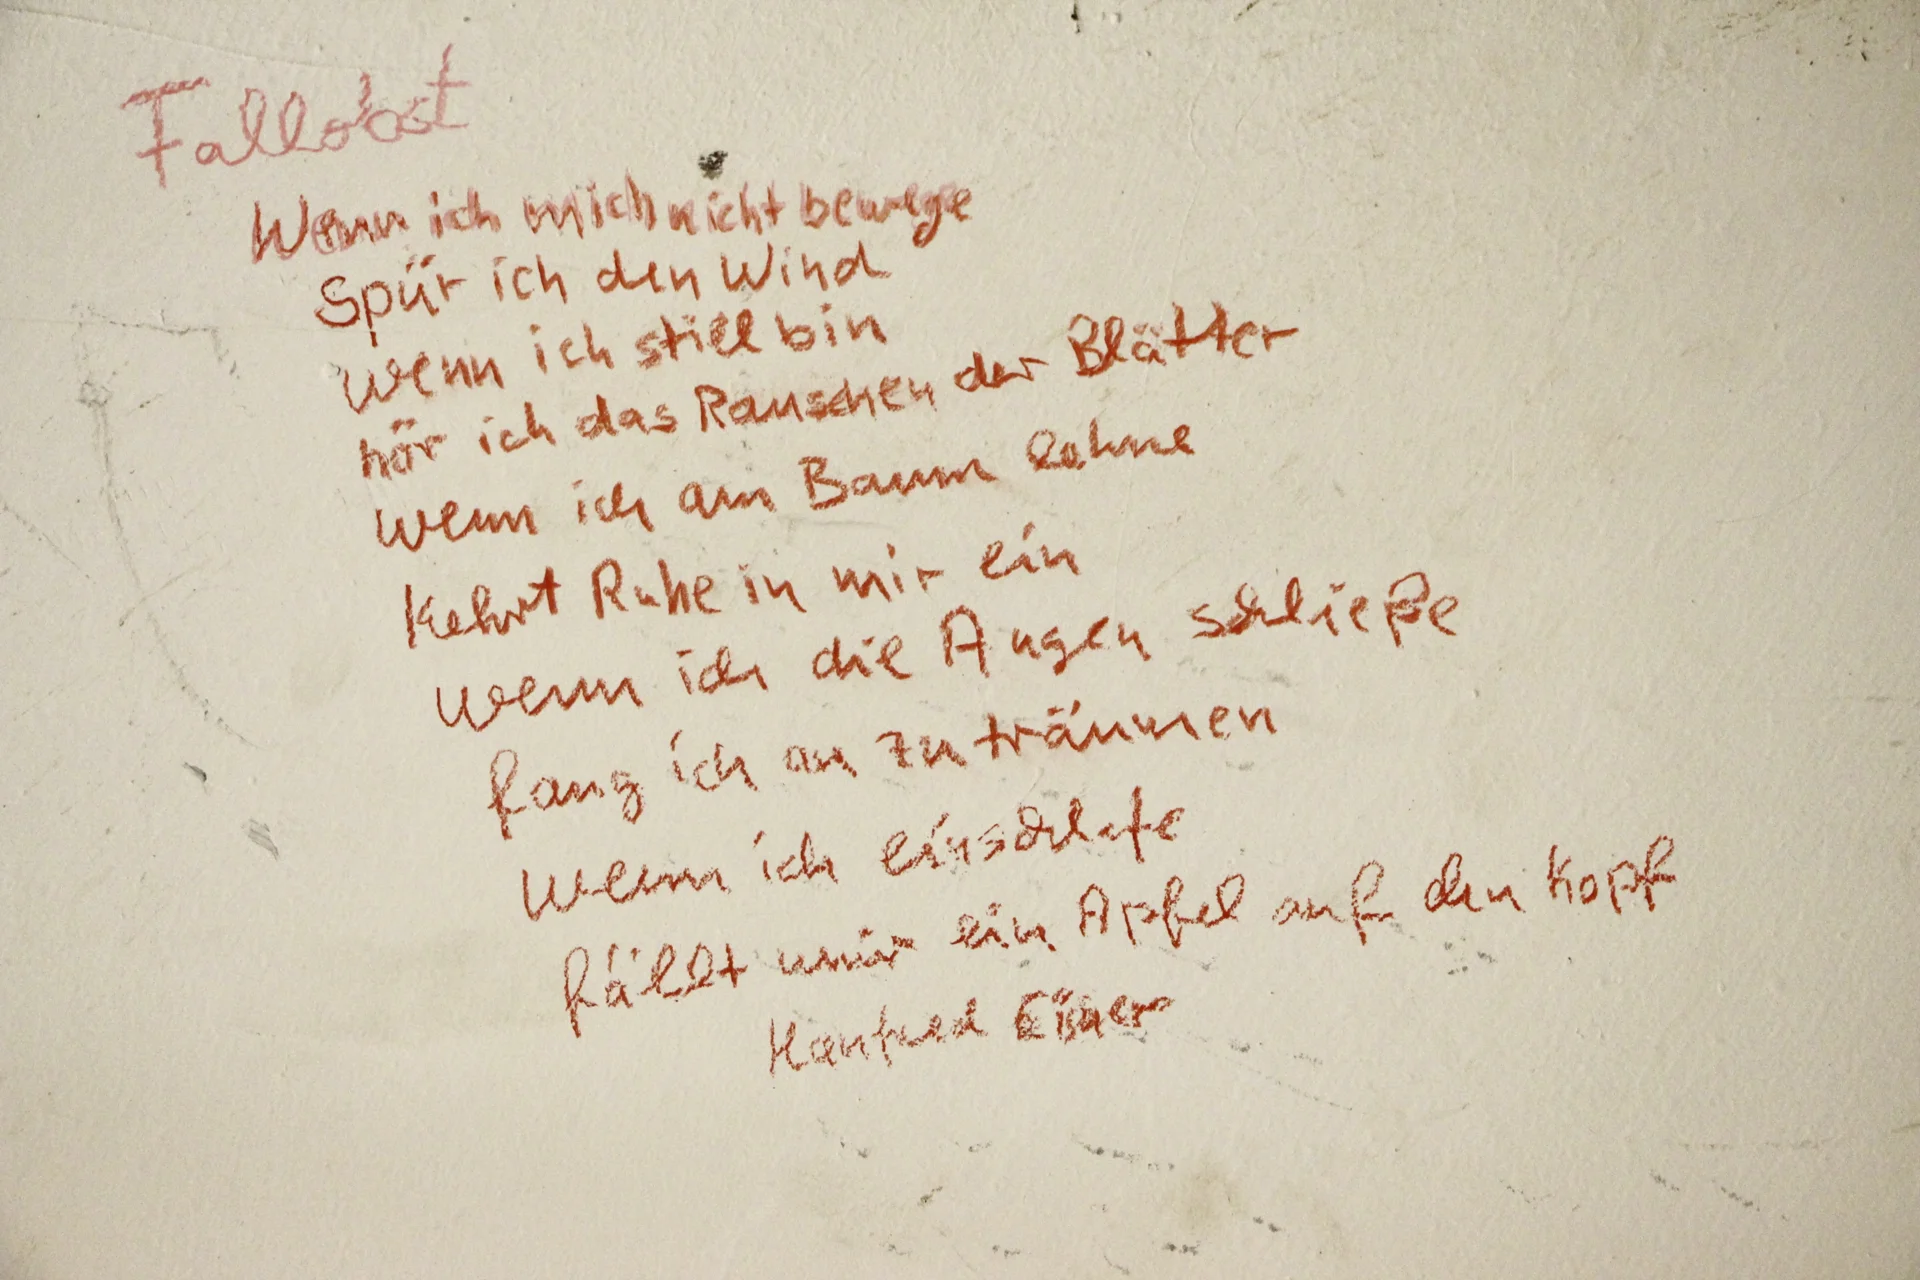 Fallobst
Wenn ich mich nicht bewege
Spür ich den Wind
Wenn ich still bin
hör ich das Rauschen der Blätter
Wenn ich am Baum lehne
Kehrt Ruhe in mir ein
Wenn ich die Augen schließe
fang ich an zu träumen
Wenn ich einschlafe
fällt mir ein Apfel auf den Kopf
Manfred